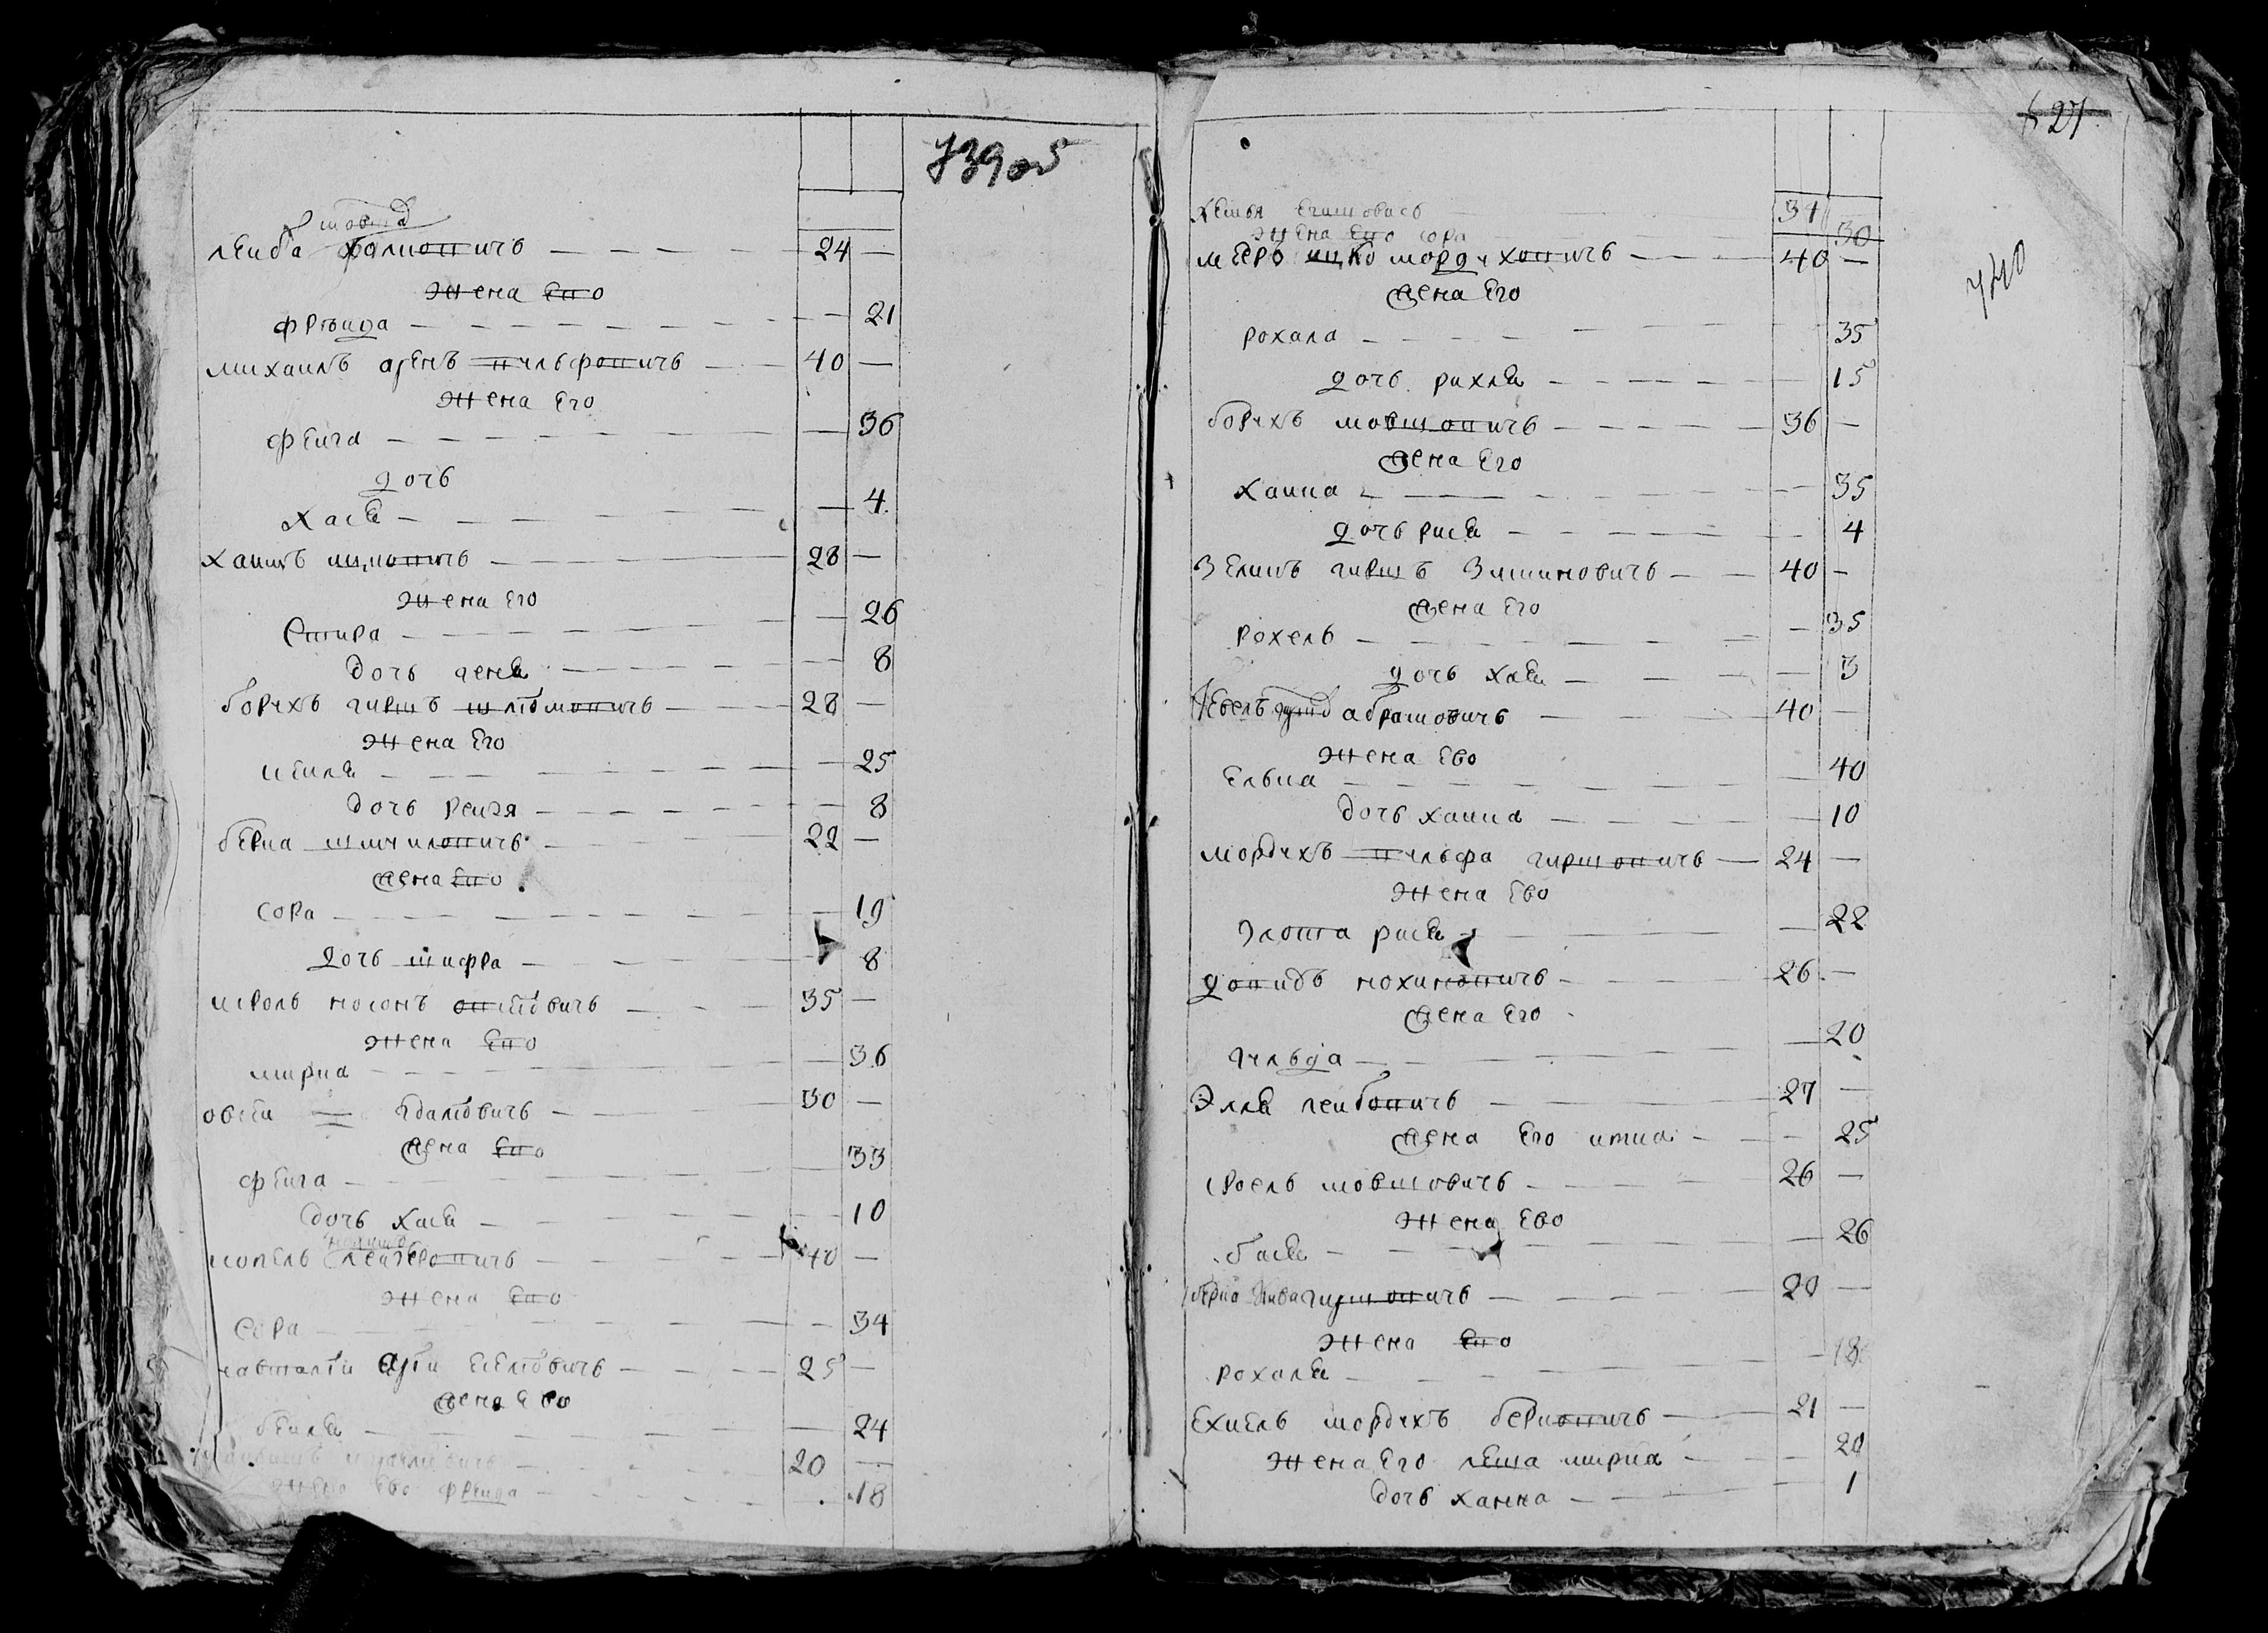 739 об
Лейба — — — — 24 —
Жена Его
Фрейда — — — — — 21
Михаилъ Аренъ Вульфовичъ — — 40 —
Жена Его
Фейга — — — — — 36
дочь
Хася — — — — — 4
Хаимъ Ицковичъ — — 28 —
Жена Его
Стира — — — — — 26
дочь Цения — — — — 8
Борухъ Гиршъ Шліомовичъ — — 28 —
Жена Его
Цейля — — — — — 25
дочь Рейзя — — — — 8
Берка Шмуиловичъ — — 22 —
Жена Его
Сора — — — — — 19
дочь Шифра — — — — 8
Исроль Носонъ — — 35 —
Жена Его
Мирка — — — — — 36
Овсей — — 30 —
Жена Его
Фейга — — — — — 33
дочь Хася — — — — 10
Иопель Лейзеровичъ — — 40 —
Жена Его
Сора — — — — — 34
Навталій Арій — — 25 —
Жена Ево
Бейля — — — — — 24
20 —
Жена Ево Фрейда — — — 18
27
740
31
Жена Его Сора — — 30
Мееръ Ицко Мордуховичъ — — 40 —
Жена Его
Рохала — — — — — 35
дочь Рихля — — — — 15
Борухъ Мовшовичъ — — 36 —
Жена Его
Хаика — — — — — 35
дочь Рися — — — — 4
Зелигъ Гиршъ Зимиловичъ — — 40 —
Жена Его
Рохель — — — — — 35
дочь Хая — — — — 3
Абрамовичъ — — 40 —
Жена Ево
Элька — — — — — 40
дочь Хаика — — — — 10
Мордухъ Вульфа Гиршовичъ — 24 —
Жена Ево
Злота Рися — — — — 22
Довидъ Нохимовичъ — — 26 —
Жена Его
Гульда — — — — — 20
Элля Лейбовичъ — — 27 —
Жена Его Итка — — — 25
Сроель Мовшовичъ — — 26 —
Жена Ево
Бася — — — — — 26
Берка Гиршовичъ — — 20 —
Жена Его
Рохаля — — — — — 18
Ехиель Мордухъ Берковичъ — — 21 —
Жена Его Леша Мирка — — — 20
дочь Ханна — — — — 1